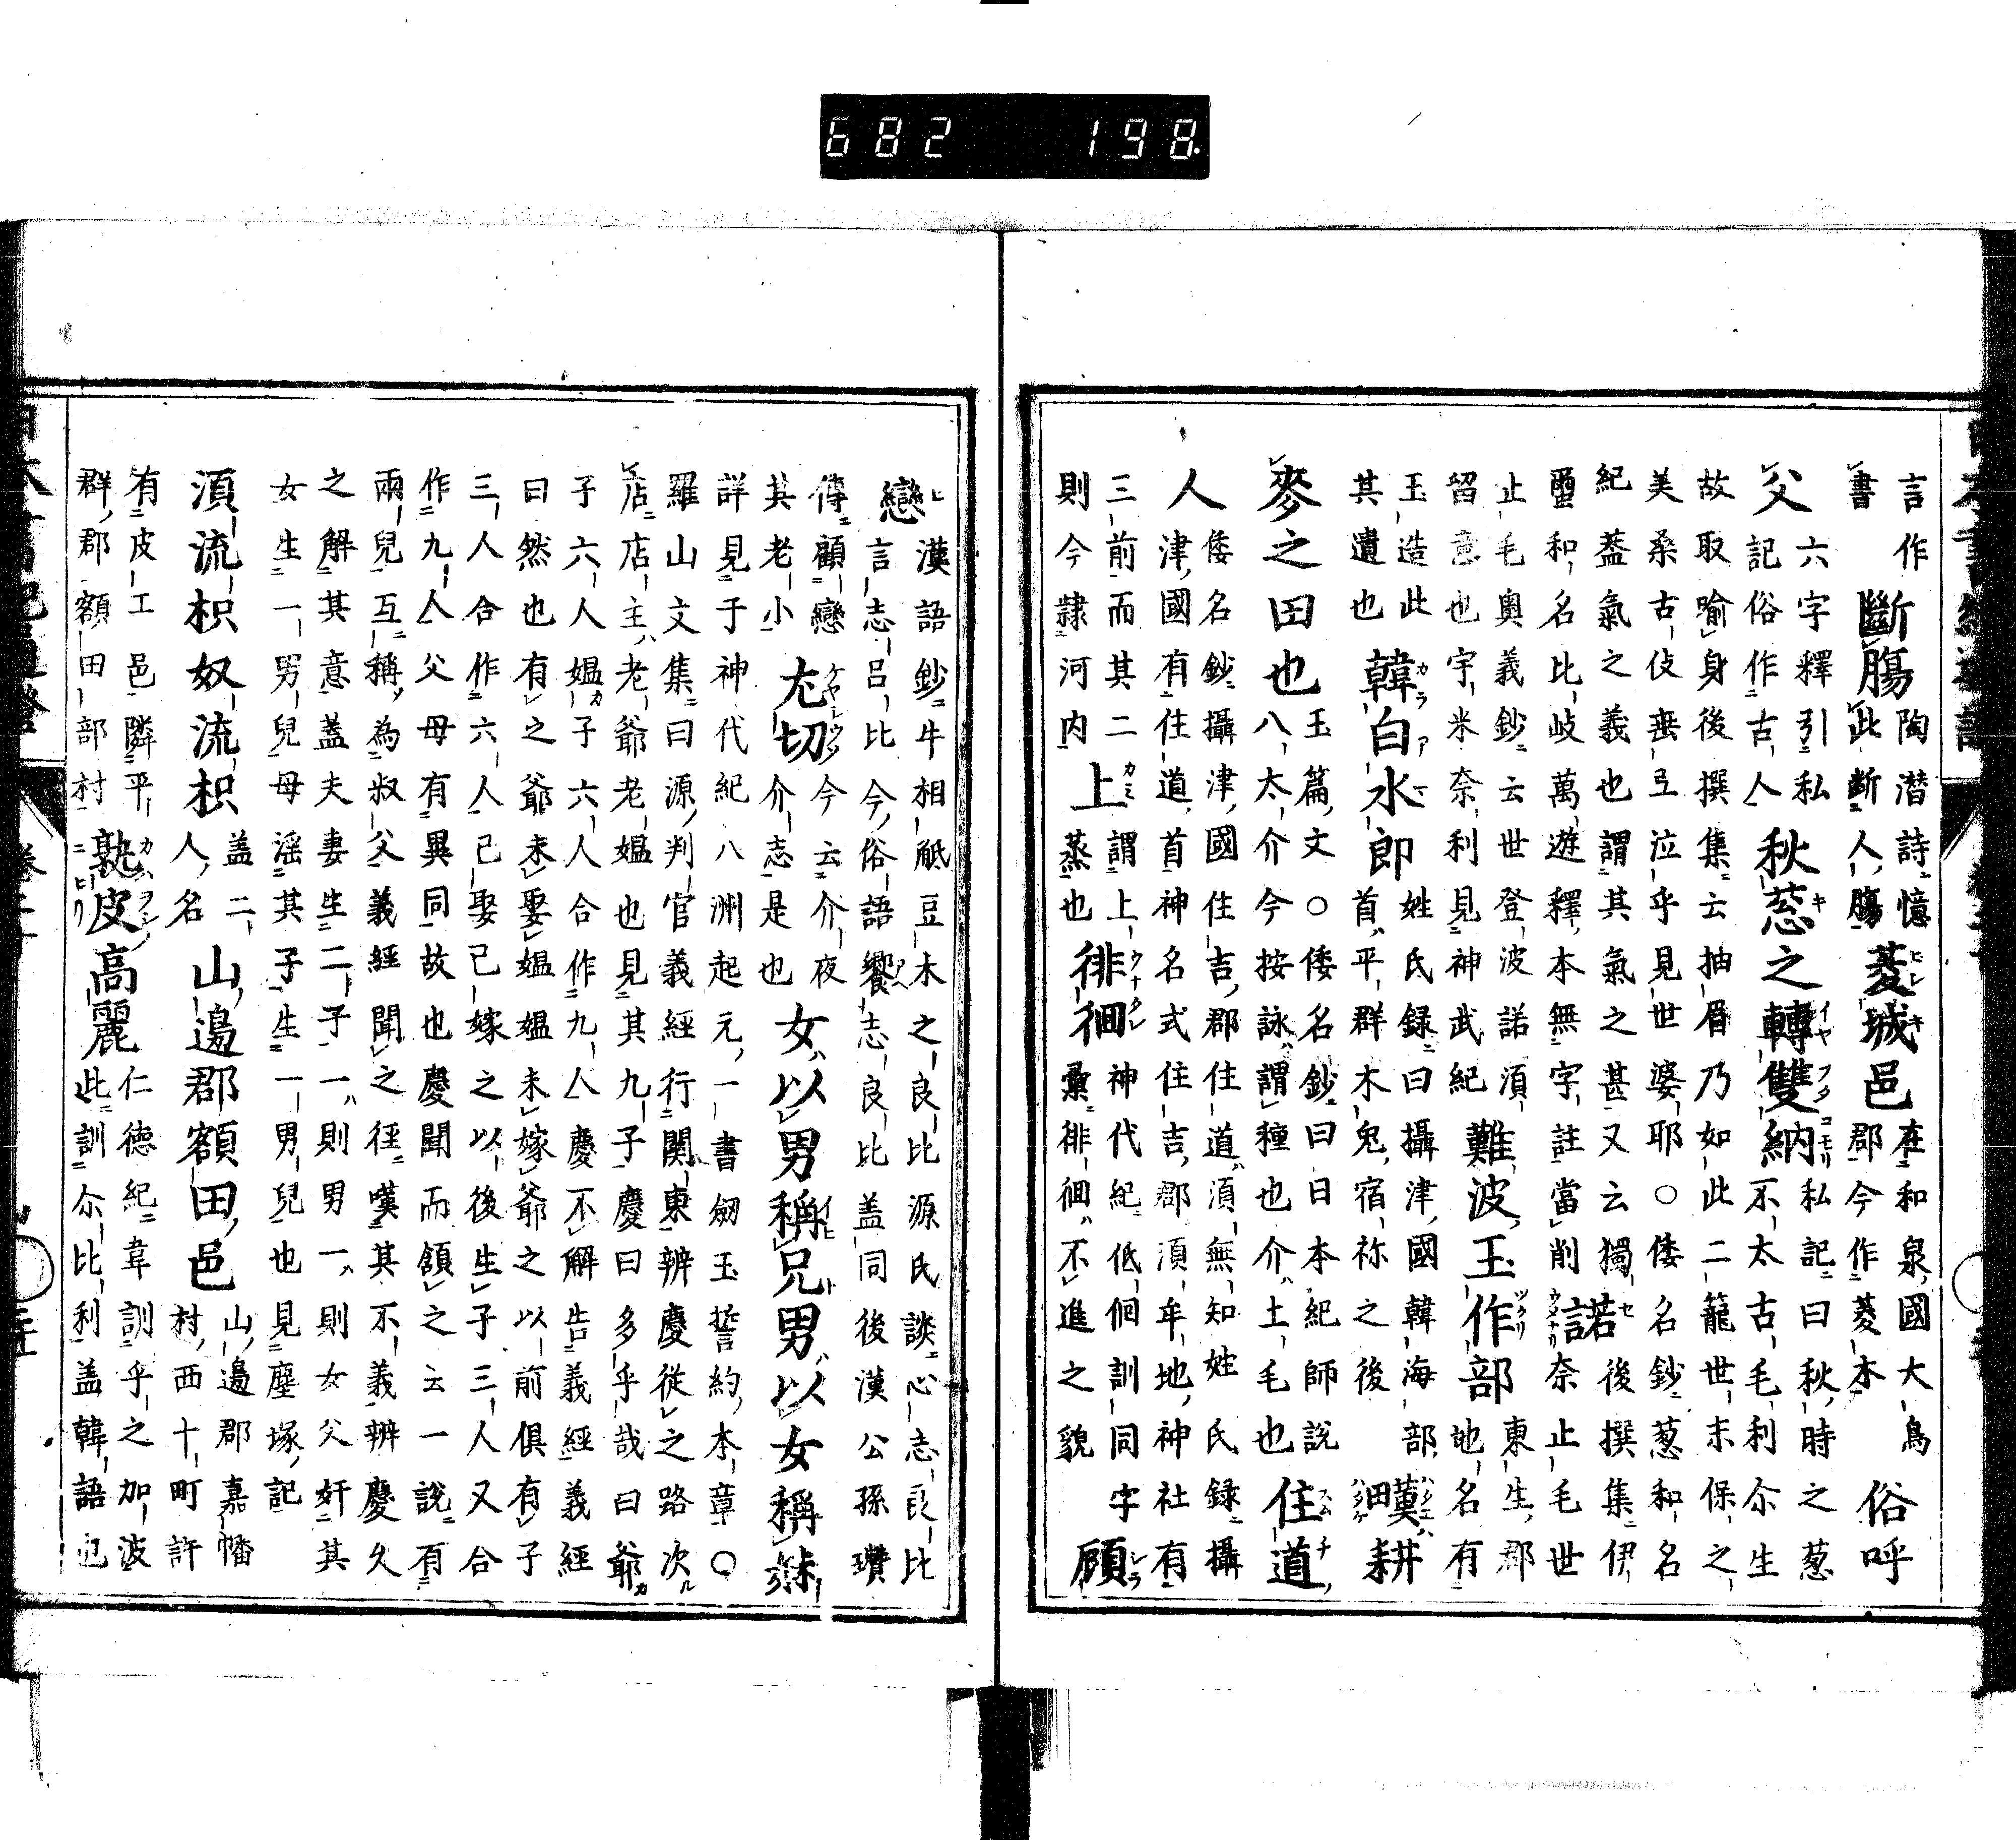 言作
書
斷腸
陶潛詩憶
此断人腸
菱城邑
在和泉國大鳥
郡今作菱木
俗呼
父
六字釋引私
記俗作古人
秋葱之轉雙納
私記曰秋時之葱
不太古毛利尓生
故取喻身後撰集云抽眉乃如此二籠世末保之
美桑古伎垂弖泣乎見世婆耶○倭名鈔葱和名
紀蓋氣之義也謂其氣之甚又云獨
和名比岐萬遊釋本無字註當削
諾
後撰集伊
奈止毛世
止毛奥義鈔云世登波諾湏
留意也宇米奈利見神武紀
難波玉作部
東生郡
地名有
玉造此
其遺也
韓白水郎
姓氏録曰攝津國韓海部
首平群木兔宿祢之後
耕
麥之田也
玉篇文○倭名鈔曰日本紀師説
八太介今按詠謂種也介土毛也
住道
人
倭名鈔攝津國住吉郡住道湏無知姓氏録攝
津國有住道首神名式住吉郡湏牟地神社有
三前而其二
則今隷河内
上
謂上
蒸也
徘徊
神代紀低佪訓同字
彙徘徊不進之貌
顧
戀
漢語鈔牛相觝豆木之良比源氏談心志良比
言志呂比今俗語饗志良比盖同後漢公孫瓚
傳顧戀
其老小
尤切
今云介夜
介志是也
女以男稱兄男以女稱妹
詳見于神代紀八洲起元一書劔玉誓約本章○
羅山文集曰源判官義經行関東辨慶從之路次
店店主老爺老媼也見其九子慶曰多乎哉曰爺
子六人媼子六人合作九人慶不解告義經義經
曰然也有之爺未娶媼媼未嫁爺之以前俱有子
三人合作六人已娶已嫁之以後生子三人又合
作九人父母有異同故也慶聞而頷之云一説有
兩兒互稱為叔父義經聞之徑嘆其不義辨慶久
之解其意蓋夫妻生二子一則男一則女父奸其
女生一男兒母淫其子生一男兒也見塵塚記
湏流枳奴流枳
盖二
人名
山邊郡額田邑
山邊郡嘉幡
村西十町許
有皮工邑隣平
群郡額田部村
熟皮高麗
仁德紀韋訓乎之加波
此訓尓比利盖韓語也